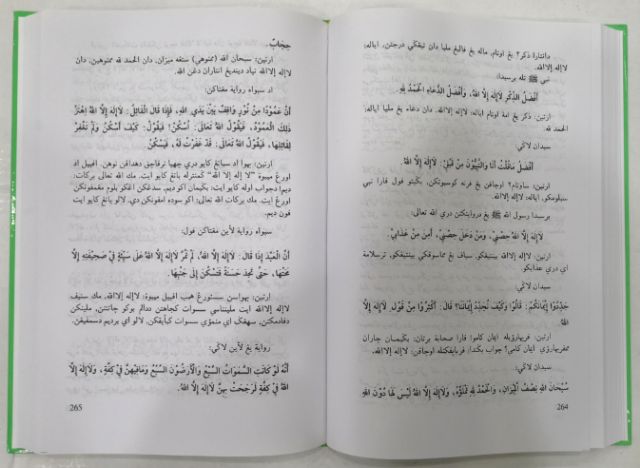 دانتارة ذكر٢ يڠ اوتام، ماله يڠ ڤاليڠ مليا دان تيڠڬي درجتڽ، اياله:
لاإله إلاالله.
نبي ﷺ تله برسبدا:
أَفْضَلُ الذِّكْرِ لَاإِلَهَ إِلَّا اللهُ، وَأَفْضَلُ الدُّعَاءِ الْحَمْدُ لِلَّهِ.
ارتيڽ: ذكر يڠ اوتام اياله: لاإله إلاالله، دان دعاء يڠ مليا اياله:
الحمد لله.
سبدان لاڬي:
أَفْضَلُ مَاقُلْتُ أَنَا وَالنَّبِيُّوْنَ مِنْ قَبْلِيْ: لَاإِلَهَ إِلَّا اللهُ.
ارتيڽ: ساوتام٢ اوچاڤن يڠ ڤرنه كوسبوتكن، بڬيتو ڤولا ڤارا نبي
سبلومكو، اياله: لاإله إلاالله.
برسبدا رسول الله ﷺ يڠ دروايتكن دري الله تعالى:
لَاإِلَهَ إِلَّا اللهُ حِصْنِيْ، وَمَنْ دَخَلَ حِصْنِيْ، أَمِنَ مِنْ عَذَابِيْ.
ارتيڽ: لاإله إلاالله بينتيڠكو. سياڤ يڠ ماسوقكي بينتيڠكو، ترسلامة
اي دري عذابكو.
سبدان لاڬي:
جَدِّدُوْا إِيْمَانَكُمْ: قَالُوْا وَكَيْفَ نُجَدِّدُ إِيْمَانَنَا؟ قَالَ: أَكْثِرُوْا مِنْ قَوْلِ لَاإِلَهَ إِلَّا
اللهُ.
ارتيڽ: ڤربهاروٕيله ايمان كامو: ڤارا صحابة برتاڽ: بڬيمان چاران
ممڤربهاروٕي ايمان كامي؟ جواب بڬيندا: ڤرباڽقكنله اوچاڤن: لاإله إلاالله.
سبدان لاڬي:
سُبْحَانَ اللهِ نِصْفُ الْمِيْزَانِ، وَالْحَمْدُ لِلَّهِ تَمْلَؤُهُ، وَلَاإِلَهَ إِلَّا اللهُ لَيْسَ لَهَا دُوْنَ اللهِ
264
حِجَابٌ.
ارتيڽ: سبحان الله (ممنوهي) ستڠه ميزان، دان الحمد لله ممنوهيڽ، دان
لاإله إلاالله تياد دينديڠ انتاران دڠن الله.
اد سبواه رواية مڠاتاكن:
أَنَّ عَمُوْدًا مِنْ نُوْرٍ وَاقِفٌ بَيْنَ يَدَيِ اللهِ، فَإِذَا قَالَ الْقَائِلُ: لَاإِلَهَ إِلَّا اللهُ اِهْتَزَّ
ذَلِكَ الْعَمُوْدُ، فَيَقُوْلُ اللهُ تَعَالَى: اُسْكُنْ! فَيَقُوْلُ: كَيْفَ أَسْكُنُ وَلَمْ تَغْفِرْ
لِقَائِلِهَا، فَيَقُوْلُ اللهُ تَعَالَى: قَدْ غَفَرْتُ لَهُ، فَيَسْكُنُ.
ارتيڽ: بهوا اد سباتڠ كايو دري چهيا ترڤاچق دهداڤن توهن. اڤبيل اد
اورڠ مڽبوة "لا إله إلا الله" ڬمنترله باتڠ كايو ايت. مك الله تعالى بركات:
ديم! دجواب اوله كايو ايت: بڬيمان اكو ديم. سدڠكن اڠكو بلوم مڠامڤونكن
اورڠ ايت. مك بركات الله تعالى: اكو سوده امڤونكن دي. لالو باتڠ كايو ايت
ڤون ديم.
سبواه رواية لاٴين مڠاتاكن ڤول:
أَنَّ الْعَبْدَ إِذَا قَالَ: لَاإِلَهَ إِلَّا اللهُ، لَمْ تَمُرَّ لَاإِلَهَ إِلَّا اللهُ عَلَى سَيِّئَةٍ فِيْ صَحِيْفَتِهِ إِلَّا
مَحَتْهَا، حَتَّى تَجِدَ حَسَنَةً فَتَسْكُنَ إِلَى جَنْبِهَا.
ارتيڽ: بهواسڽ سسئورڠ همب اڤبيل مڽبوة: لاإله إلاالله، مك ستياڤ
لاإله إلاالله ايت مليتناسي سسوات كجاهتن ددالم بوكو چاتتنڽ، ملينكن
دڤادمكنڽ، سهڠڬ اي منموٕي سسوات كباٴيقكن. لالو اي برديم دسمڤيڠڽ.
رواية يڠ لاٴين لاڬي:
أَنَّهُ لَوْ كَانَتِ السَّمَوَاتُ السَّبْعُ وَالْأَرَضُوْنَ السَّبْعُ وَمَافِيْهِنَّ فِيْ كِفَّةٍ، وَلَاإِلَهَ إِلَّا
اللهُ فِيْ كِفَّةٍ لَرَجَحَتْ مِنْ لَاإِلَهَ إِلَّا اللهُ.
265